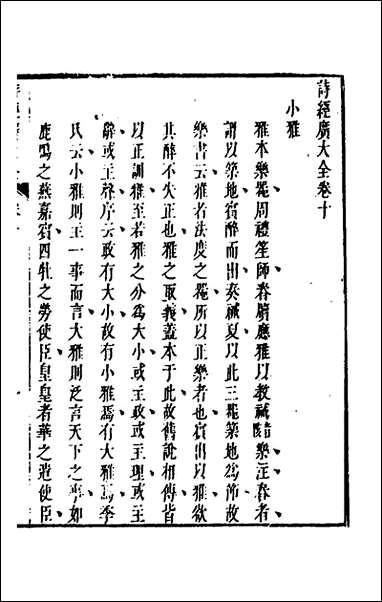 詩經廣大全卷十
小雅
雅本樂噐周禮笙師舂牘應雅以教祴䧹樂注舂者
謂以築地賔醉而出奏祴夏以此三噐築地爲節故
樂書云雅者法度之噐所以正樂者也賔出以雅欲
其醉不失正也雅之取義蓋本于此故舊說相傳皆
以正訓雅至若雅之分爲大小或主政或主理或主
辭或主聲序云政有大小故有小雅焉有大雅焉季
氏云小雅則主一事而言大雅則泛言天下之事如
鹿鳴之燕嘉賔四牡之勞使臣皇皇者華之遣使臣